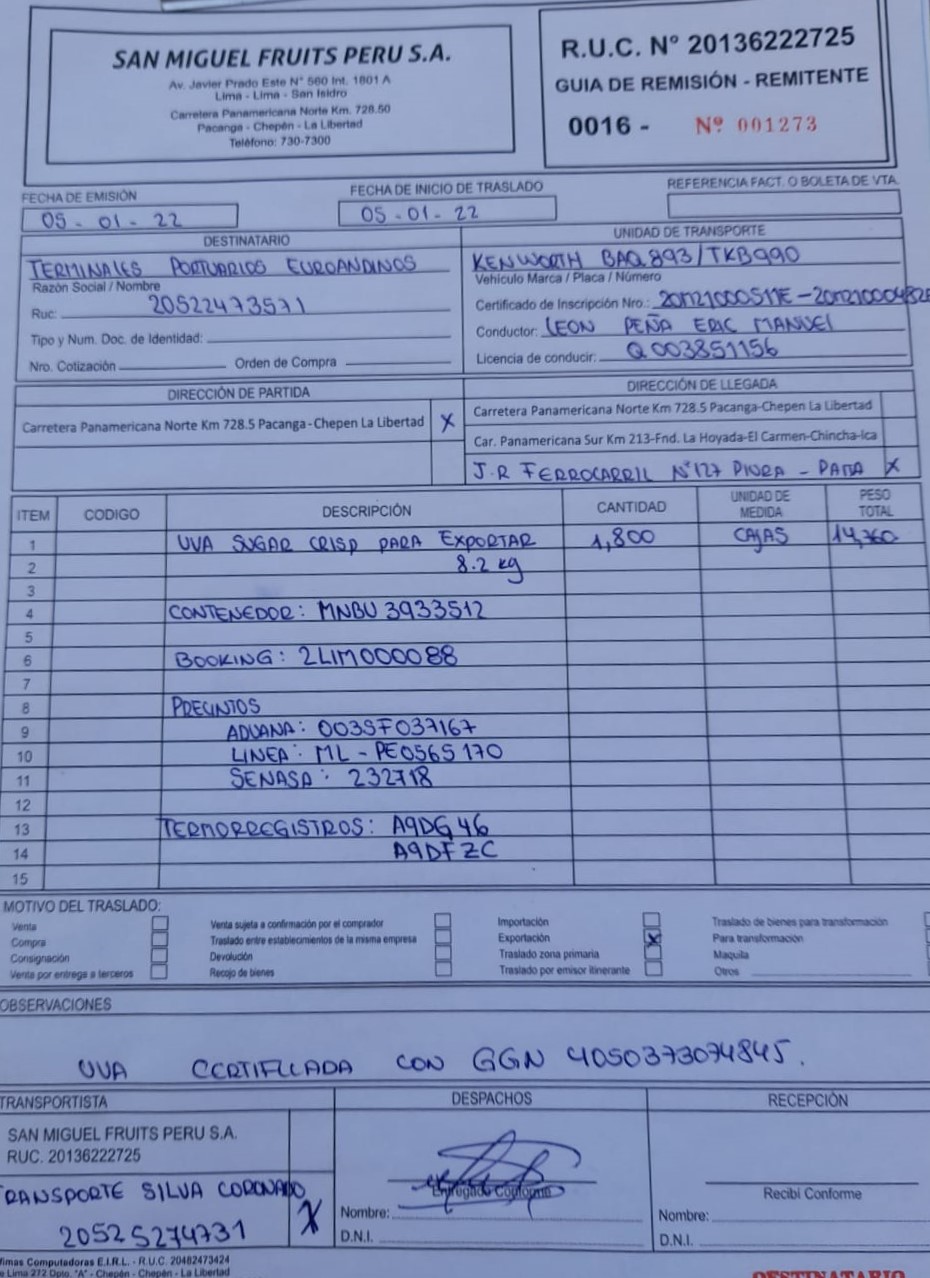 SAN MIGUEL FRUITS PERU S.A.
Av. Javier Prado Este N° 560 Int. 1801 A
Lima - Lima - San Isidro
Carretera Panamericana Norte Km. 728.50
Pacanga - Chepén - La Libertad
Teléfono: 730-7300
R.U.C. N° 20136222725
GUIA DE REMISIÓN - REMITENTE
0016 - Nº 001273
FECHA DE EMISIÓN
05 - 01 - 22
FECHA DE INICIO DE TRASLADO
05 - 01 - 22
REFERENCIA FACT. O BOLETA DE VTA.
DESTINATARIO
TERMINALES PORTUARIOS EUROANDINOS
Razón Social / Nombre
Ruc: 20522473571
Tipo y Num. Doc. de Identidad:
Nro. Cotización Orden de Compra
UNIDAD DE TRANSPORTE
KENWORTH BAQ893/TKB990
Vehículo Marca / Placa / Número
Certificado de Inscripción Nro.:
Conductor: LEON PEÑA ERIC MANUEL
Licencia de conducir: Q003851156
DIRECCIÓN DE PARTIDA
Carretera Panamericana Norte Km 728.5 Pacanga-Chepen La Libertad X
DIRECCIÓN DE LLEGADA
Carretera Panamericana Norte Km 728.5 Pacanga-Chepen La Libertad
Car. Panamericana Sur Km 213-Fnd. La Hoyada-El Carmen-Chincha-Ica
J.R FERROCARRIL N°127 PIURA - PAITA X
ITEM CODIGO DESCRIPCIÓN CANTIDAD UNIDAD DE MEDIDA PESO TOTAL
1 UVA SUGAR CRISP PARA EXPORTAR 1,800 CAJAS 14,760
2 8.2 kg
3
4 CONTENEDOR: MNBU 3933512
5
6 BOOKING: 2LIM000088
7
8 PRECINTOS
9 ADUANA: 003SF037167
10 LINEA: ML - PE0565170
11 SENASA: 232718
12
13 TERMORREGISTROS: A9DG46
14 A9DFZC
15
MOTIVO DEL TRASLADO:
Venta
Compra
Consignación
Venta por entrega a terceros
Venta sujeta a confirmación por el comprador
Traslado entre establecimientos de la misma empresa
Devolución
Recojo de bienes
Importación
Exportación X
Traslado zona primaria
Traslado por emisor itinerante
Traslado de bienes para transformación
Para transformación
Maquila
Otros
OBSERVACIONES
UVA CERTIFICADA CON GGN 4050373074845.
TRANSPORTISTA
SAN MIGUEL FRUITS PERU S.A.
RUC. 20136222725
TRANSPORTE SILVA CORONADO
20525274731 X
DESPACHOS
Entregado Conforme
Nombre:
D.N.I.
RECEPCIÓN
Recibi Conforme
Nombre:
D.N.I.
fimas Computadoras E.I.R.L. - R.U.C. 20482473424
Lima 272 Dpto. "A" - Chepén - Chepén - La Libertad
DESTINATARIO